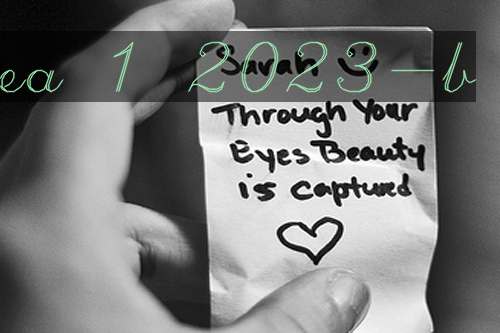 ea 1 2023-b
Sarah
Through Your
Eyes Beauty
is captured